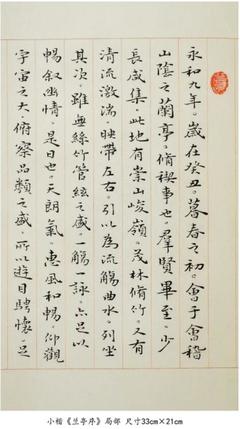 永和九年。歲在癸丑。暮春之初。會于會稽
山陰之蘭亭。脩禊事也。羣賢畢至。少
長咸集。此地有崇山峻嶺。茂林脩竹。又有
清流激湍。映帶左右。引以為流觴曲水。列坐
其次。雖無絲竹管絃之盛。一觴一詠。亦足以
暢敘幽情。是日也。天朗氣。惠風和暢。仰觀
宇宙之大。俯察品類之盛。所以遊目騁懷。足
小楷《兰亭序》局部 尺寸33cm×21cm